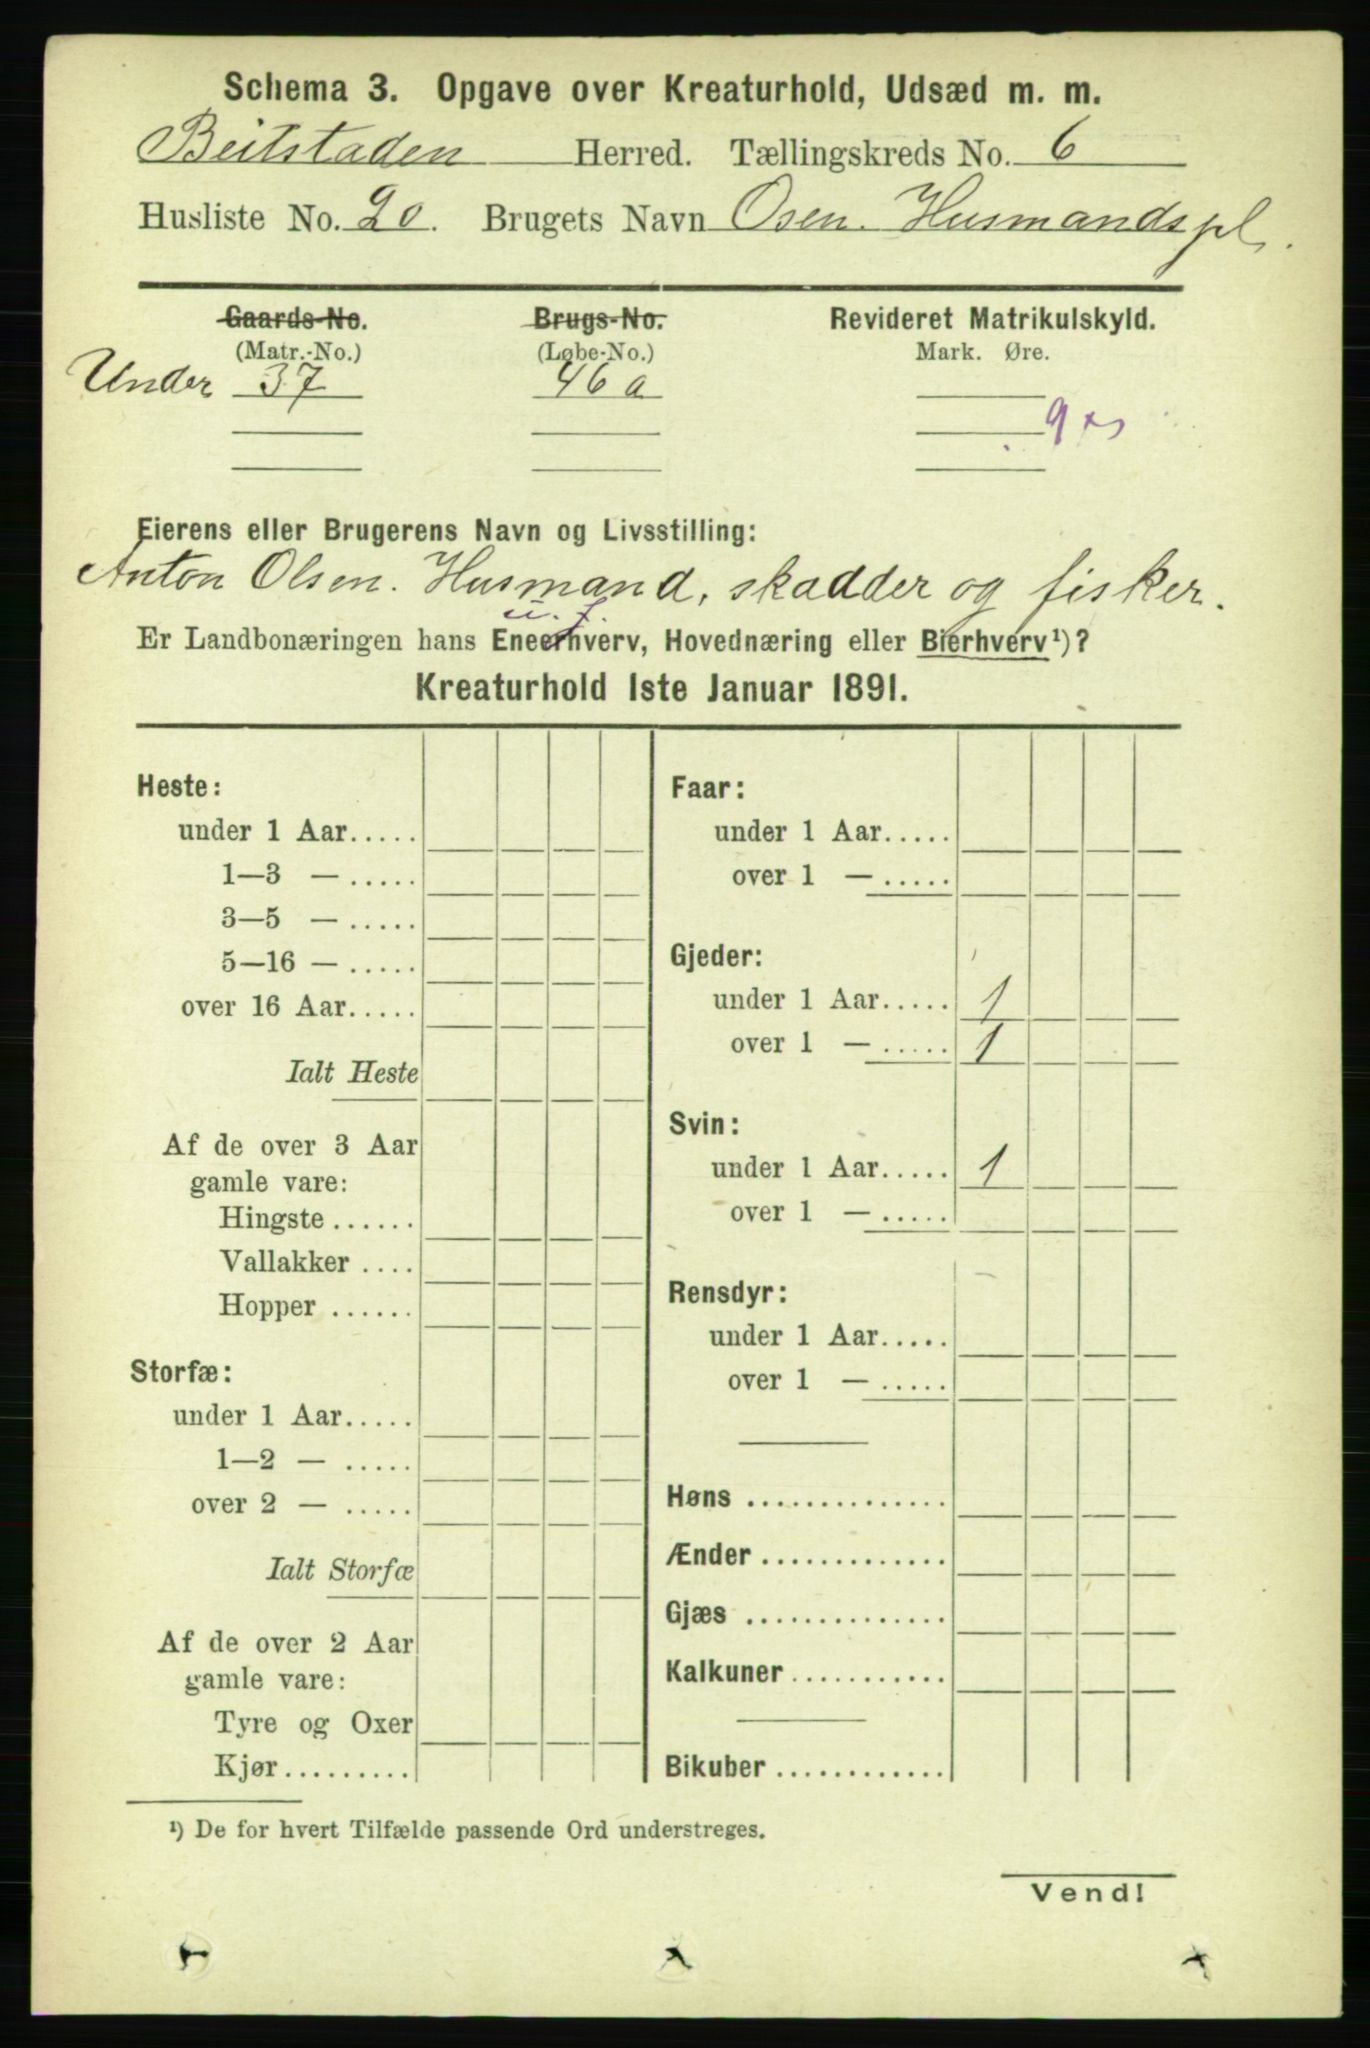 Schema 3. Opgave over Kreaturhold, Udsæd m. m.
Beitstaden Herred. Tællingskreds No. 6
Husliste No. 20. Brugets Navn Osen. Husmandspl.
Gaards-No. Brugs-No. Revideret Matrikulskyld.
(Matr.-No.) (Løbe-No.) Mark. Øre.
Under 37 46 a
Eierens eller Brugerens Navn og Livsstilling:
Anton Olsen. Husmand, skadder og fisker.
u. f.
Er Landbonæringen hans Eneerhverv, Hovednæring eller Bierhverv¹)?
Kreaturhold 1ste Januar 1891.
Heste:
under 1 Aar.....
1—3 — .....
3—5 — .....
5—16 — .....
over 16 Aar.....
Ialt Heste
Af de over 3 Aar
gamle vare:
Hingste ......
Vallakker ....
Hopper ......
Storfæ:
under 1 Aar.....
1—2 — .....
over 2 — .....
Ialt Storfæ
Af de over 2 Aar
gamle vare:
Tyre og Oxer
Kjør.........
Faar:
under 1 Aar.....
over 1 — .....
Gjeder:
under 1 Aar..... 1
over 1 — ..... 1
Svin:
under 1 Aar..... 1
over 1 — .....
Rensdyr:
under 1 Aar.....
over 1 — .....
Høns ..............
Ænder .............
Gjæs ..............
Kalkuner ...........
Bikuber ............
¹) De for hvert Tilfælde passende Ord understreges.
Vend!